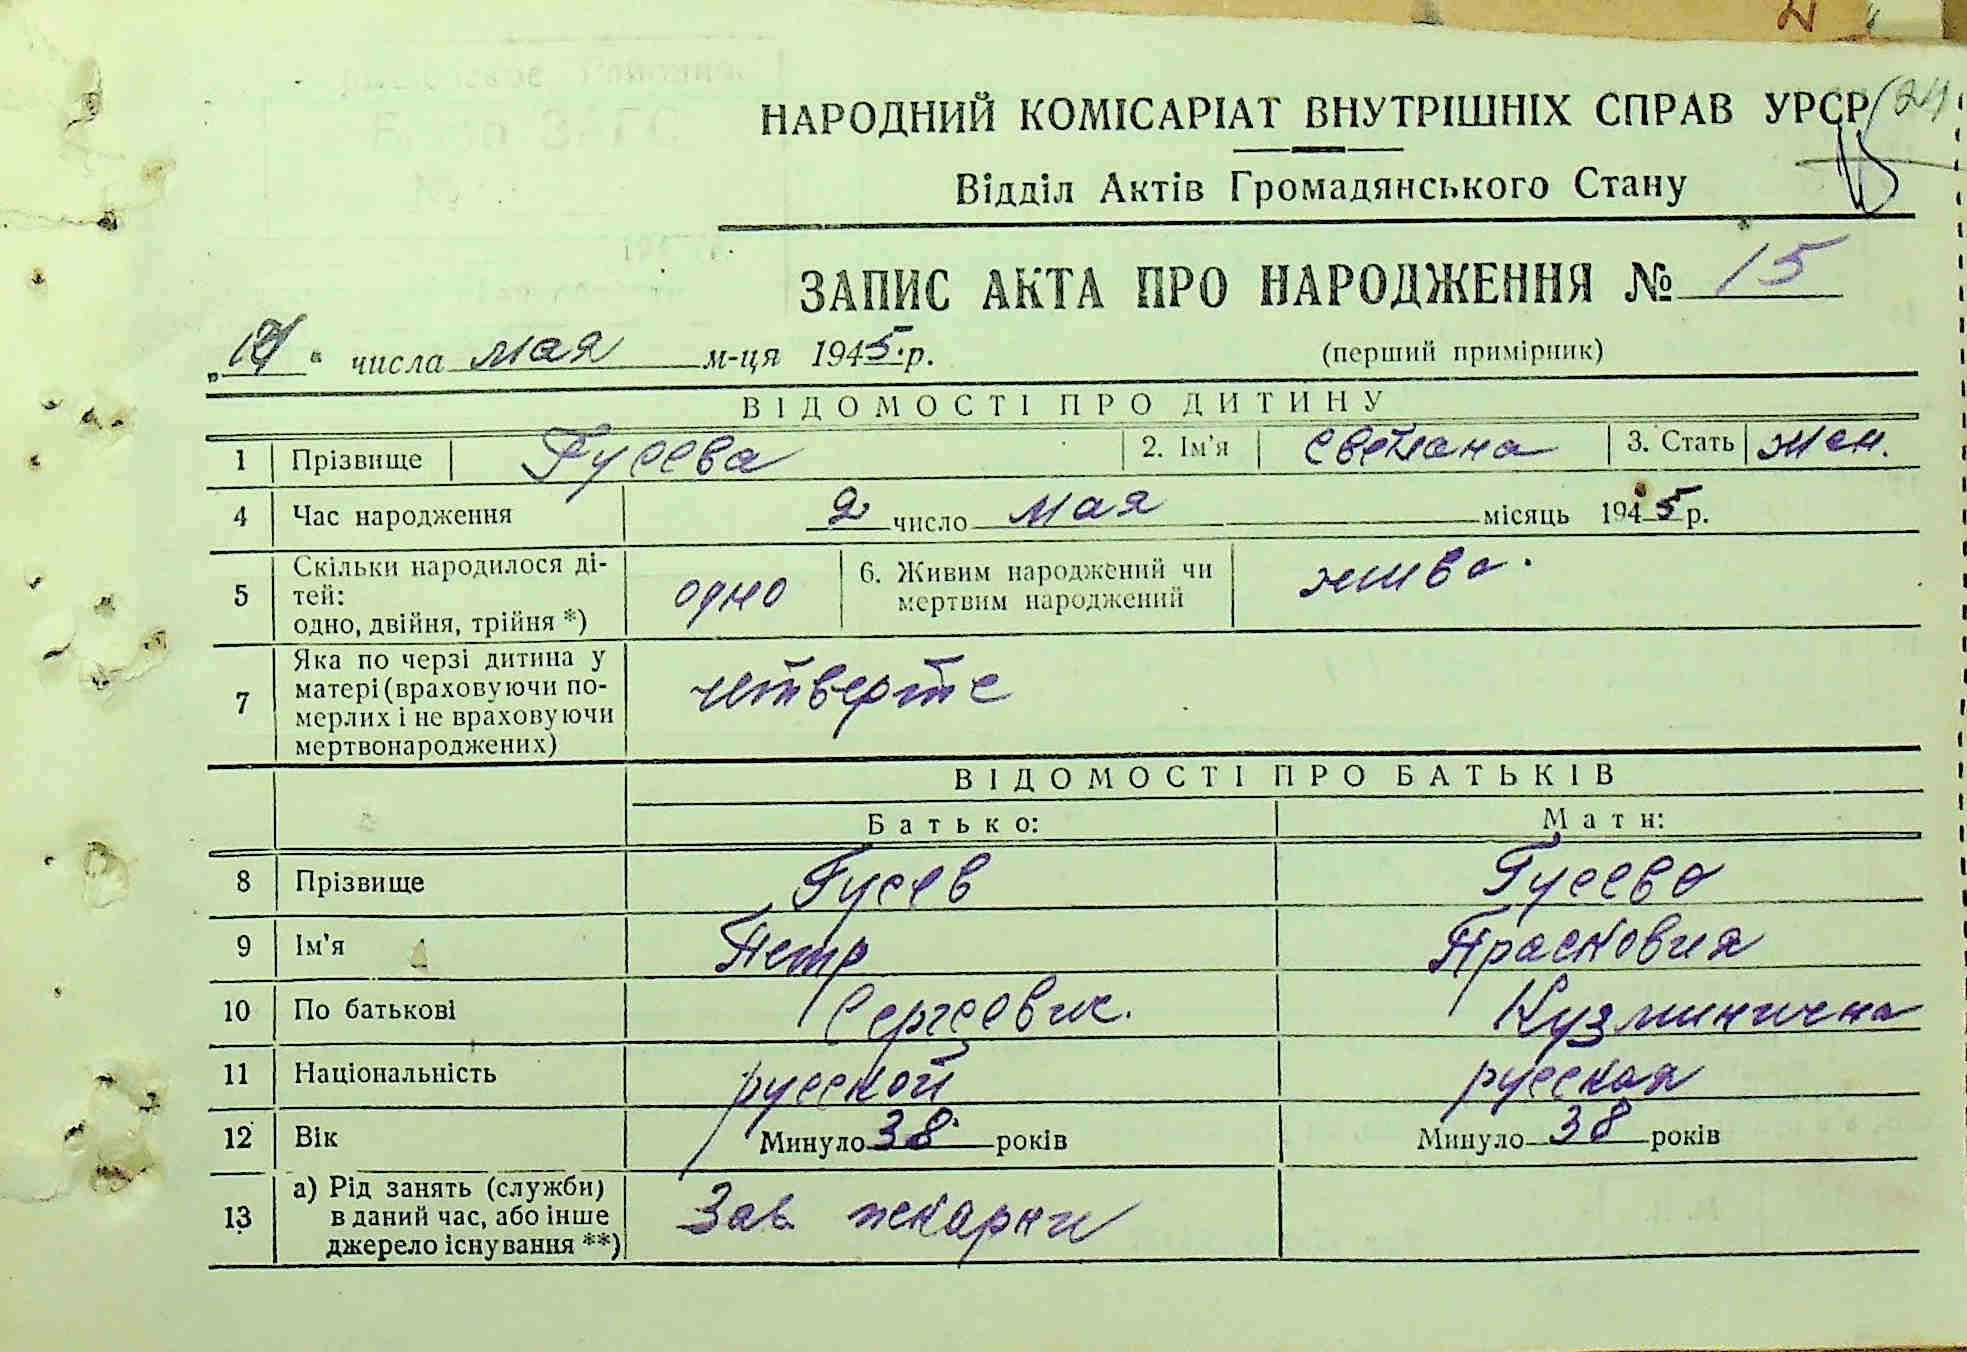 НАРОДНИЙ КОМІСАРІАТ ВНУТРІШНІХ СПРАВ УРСР
Відділ Актів Громадянського Стану
ЗАПИС АКТА ПРО НАРОДЖЕННЯ № 15
" числа мая м-ця 1945.р.
(перший примірник)
ВІДОМОСТІ ПРО ДИТИНУ
1 Прізвище Гусева 2. Ім'я Светлана 3. Стать жен.
4 Час народження 2 число мая місяць 1945 р.
5 Скільки народилося ді-
тей:
одно, двійня, трійня *) одно 6. Живим народжений чи
мертвим народжений жива.
7 Яка по черзі дитина у
матері (враховуючи по-
мерлих і не враховуючи
мертвонароджених) четверте
ВІДОМОСТІ ПРО БАТЬКІВ
Батько: Мати:
8 Прізвище Гусев Гусева
9 Ім'я Петр Прасковия
10 По батькові Сергеевич. Кузминична
11 Національність русской русская
12 Вік Минуло 38 років Минуло 38 років
13 а) Рід занять (служби)
в даний час, або інше
джерело існування **) Зав. пекарни